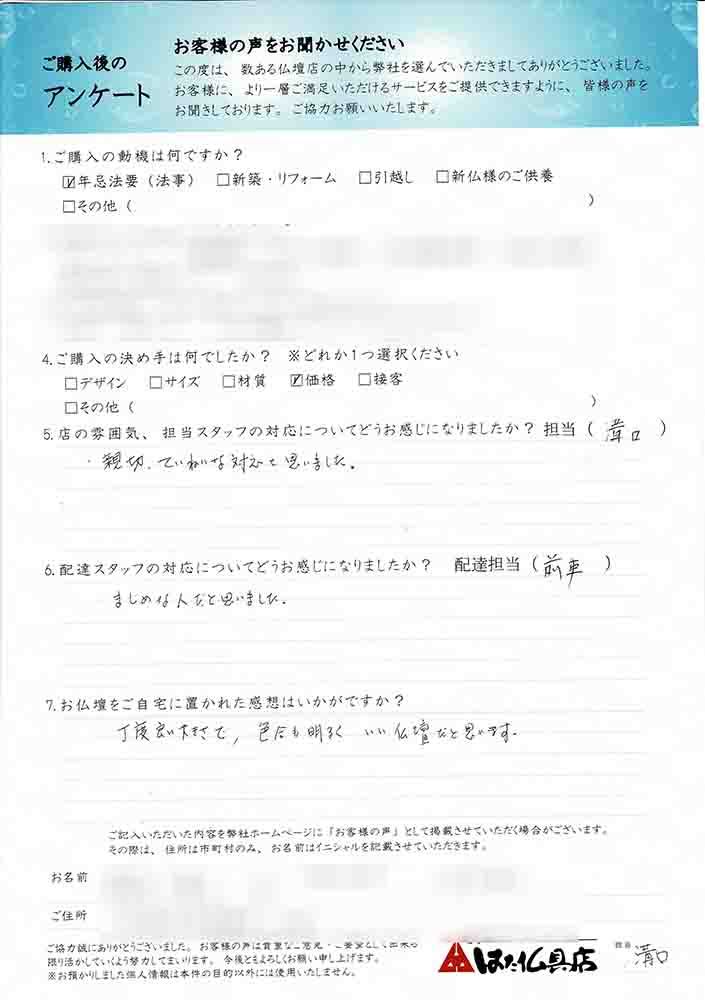 ご購入後の
アンケート
お客様の声をお聞かせください
この度は、数ある仏壇店の中から弊社を選んでいただきましてありがとうございました。
お客様に、より一層ご満足いただけるサービスをご提供できますように、皆様の声を
お聞きしております。ご協力お願いいたします。
1.ご購入の動機は何ですか？
☑年忌法要（法事） □新築・リフォーム □引越し □新仏様のご供養
□その他（ ）
4.ご購入の決め手は何でしたか？ ※どれか1つ選択ください
□デザイン □サイズ □材質 ☑価格 □接客
□その他（ ）
5.店の雰囲気、担当スタッフの対応についてどうお感じになりましたか？担当（溝口）
・親切、ていねいな対応と思いました。
6.配達スタッフの対応についてどうお感じになりましたか？ 配達担当（前車）
まじめな人だと思いました。
7.お仏壇をご自宅に置かれた感想はいかがですか？
丁度良い大きさで、色合も明るく いい仏壇だと思います。
ご記入いただいた内容を弊社ホームページに「お客様の声」として掲載させていただく場合がございます。
その際は、住所は市町村のみ、お名前はイニシャルを記載させていただきます。
お名前
ご住所
ご協力誠にありがとうございました。お客様の声は貴重なご意見・ご要望として出来る
限り活かしていくよう努力してまいります。今後ともよろしくお願い申し上げます。
※お預かりしました個人情報は本件の目的以外には使用いたしません。
はた仏具店
溝口